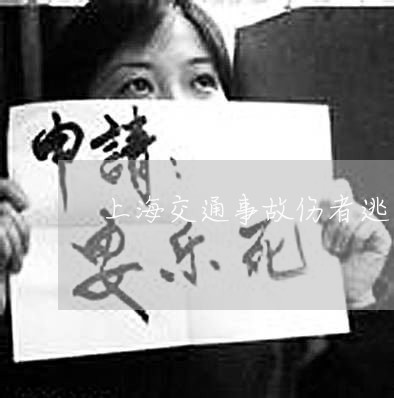 申請：
上海交通事故伤者逃
要乐死